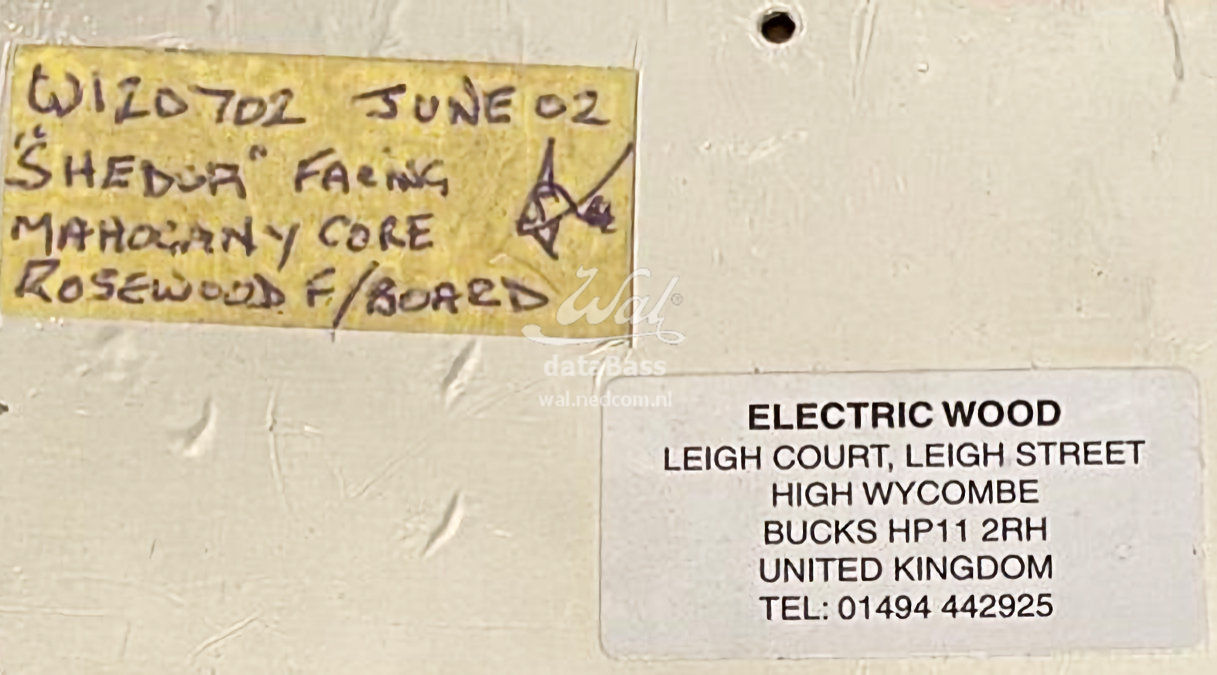 W120702 JUNE 02
"SHEDUA" FACING
MAHOGANY CORE
ROSEWOOD F/BOARD
Wal®
dataBass
wal.nedcom.nl
ELECTRIC WOOD
LEIGH COURT, LEIGH STREET
HIGH WYCOMBE
BUCKS HP11 2RH
UNITED KINGDOM
TEL: 01494 442925